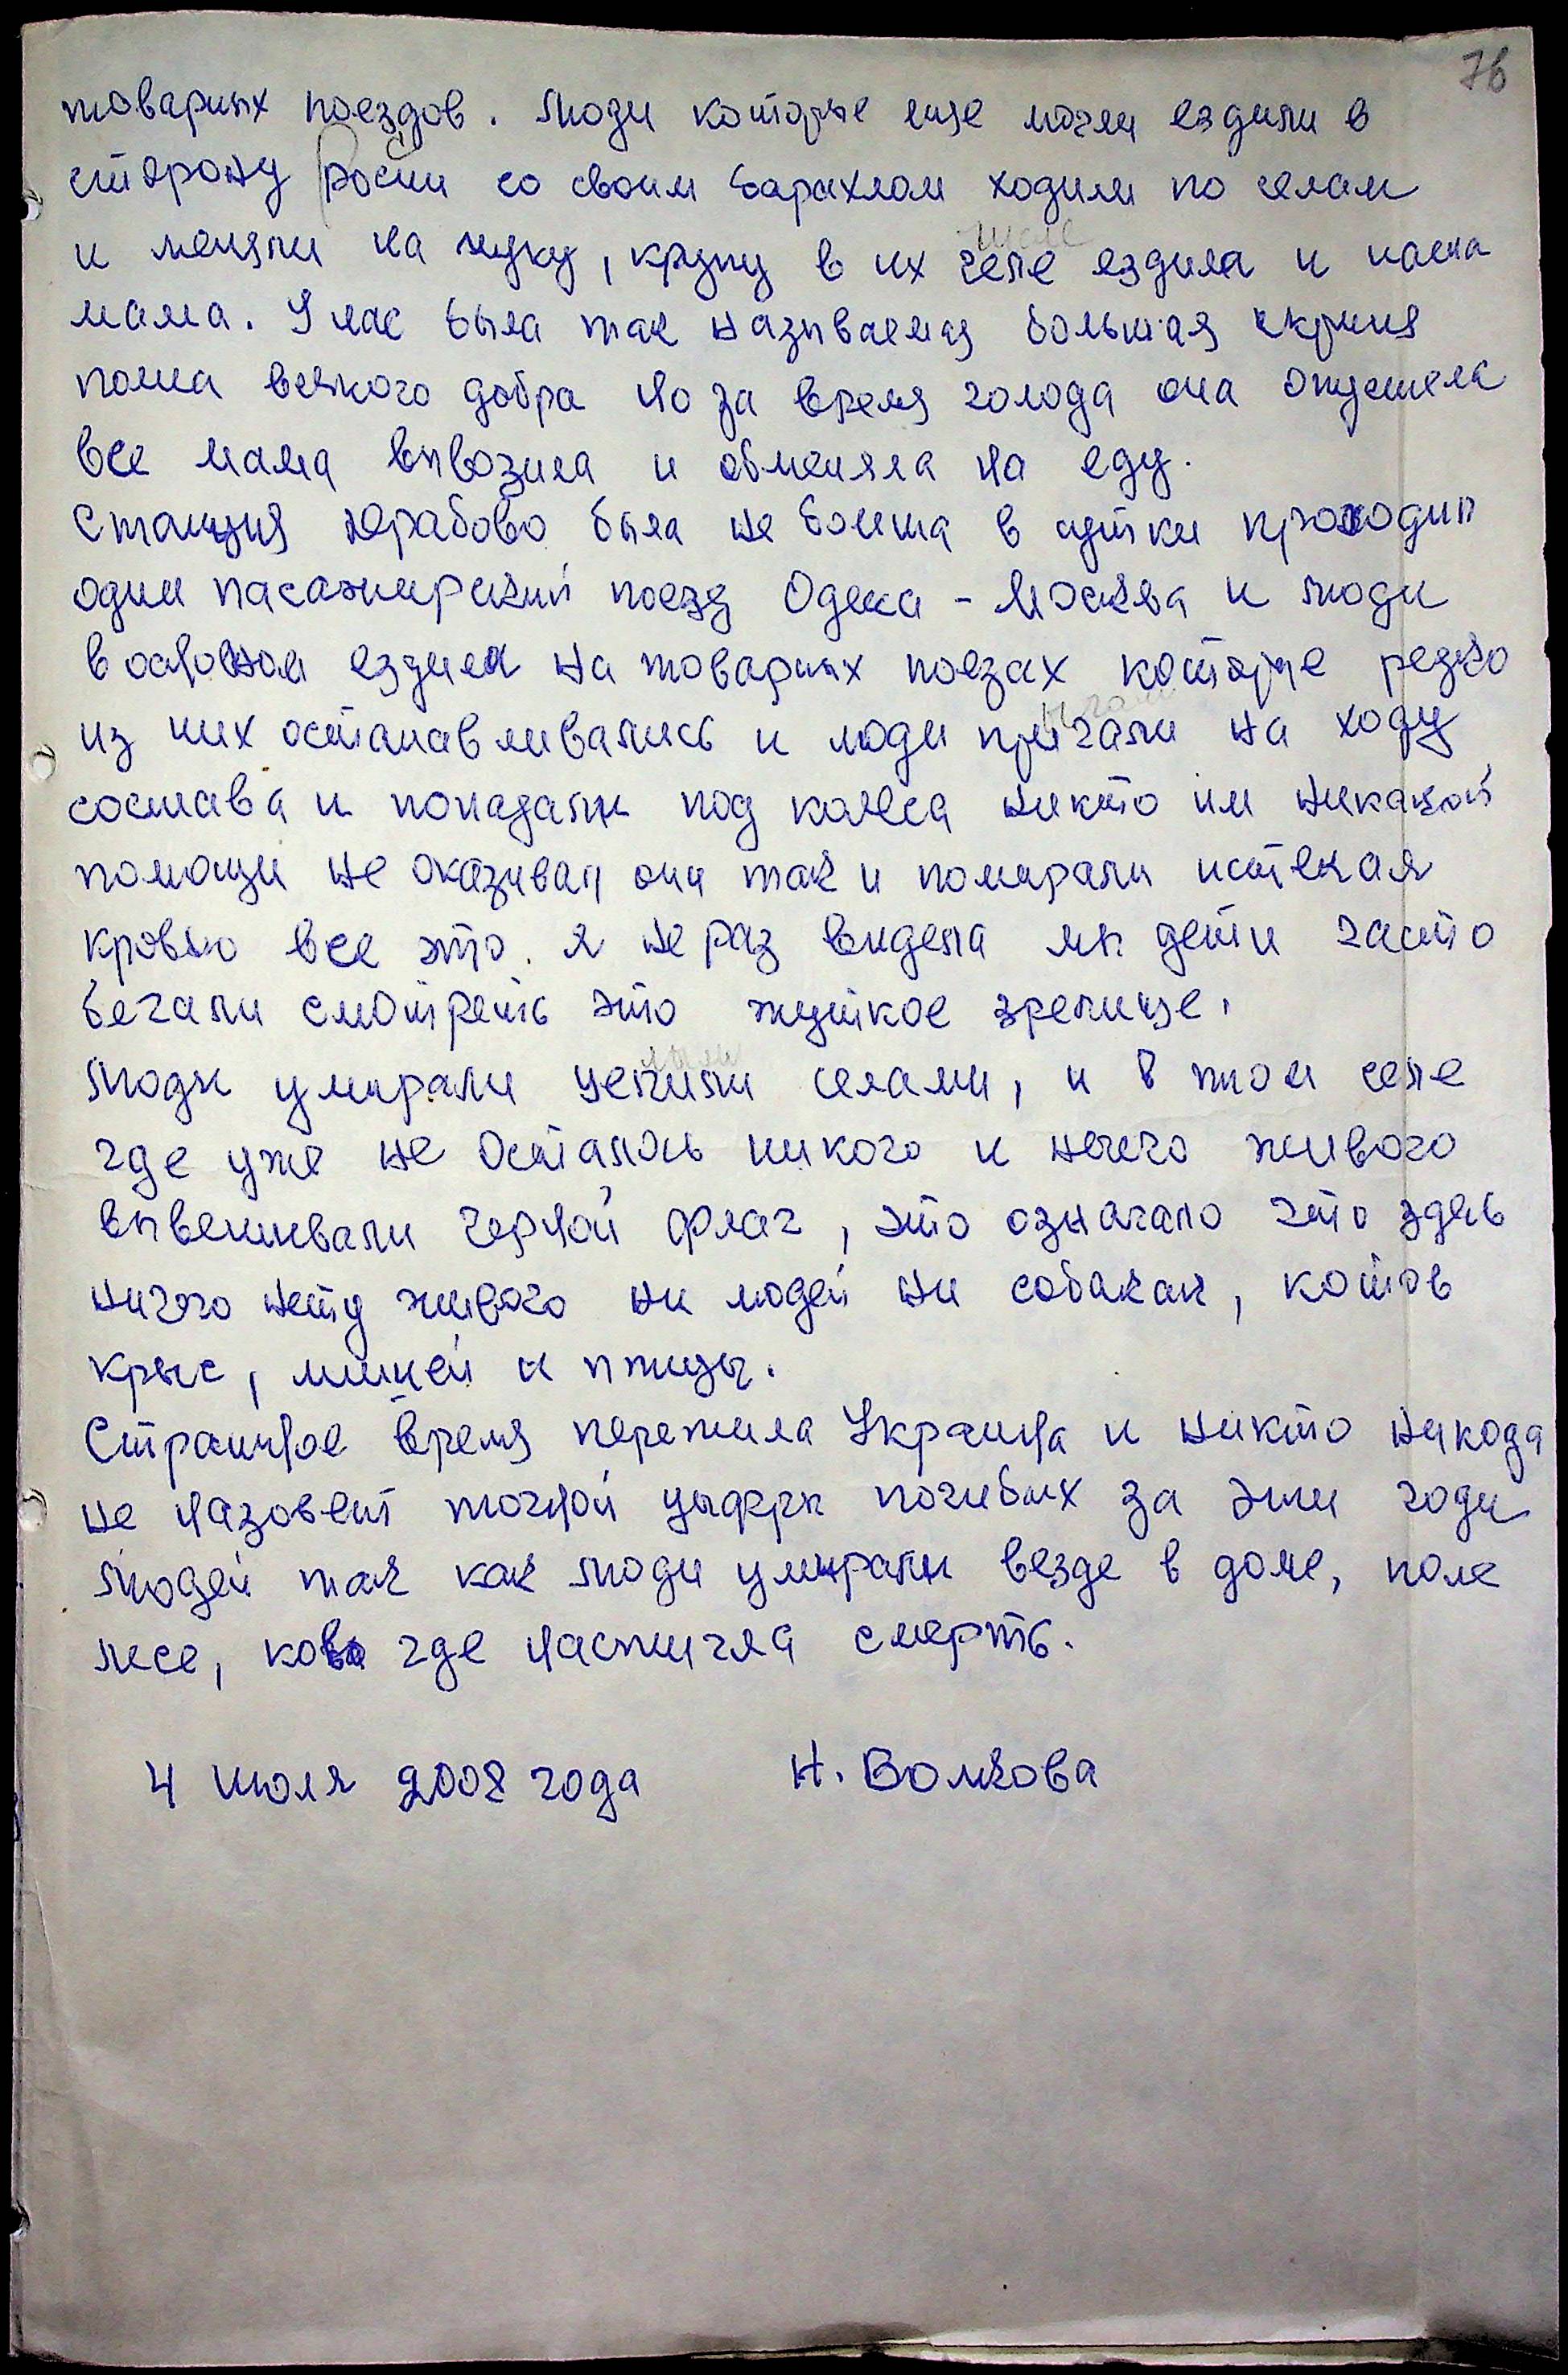 76
товарных поездов. Люди которые еще могли ездили в
сторону Росии со своим барахлом ходили по селам
и меняли на муку, крупу в их челе ездила и наша
мама. У нас была так называемая большая скрыня
полна всякого добра но за время голода она опустела
все мама вывозила и обменяла на еду.
Станция Драбово была не болша в сутки проходил
один пасажирский поезд Одеса - Москва и люди
в основном ездили на товарных поезах которые редко
из них останавливались и люди пригали на ходу
состава и попадали под колеса никто им никакой
помощи не оказывал они так и помирали истекая
кровью все это. я не раз видела мы дети часто
бегали смотреть это жуткое зрелище.
Люди умирали целили селами, и в том селе
где уже не осталось никого и нечего живого
вывешивали черной флаг, это означало что здесь
ничего нету живого ни людей ни собакак, котов
крыс, мишей и птицы.
Страшное время пережила Украина и никто никода
не назовет точной цыфры погибших за эти годы
людей так как люди умирали везде в доме, поле
лесе, кова где настигла смерть.
4 июля 2008 года Н. Волкова